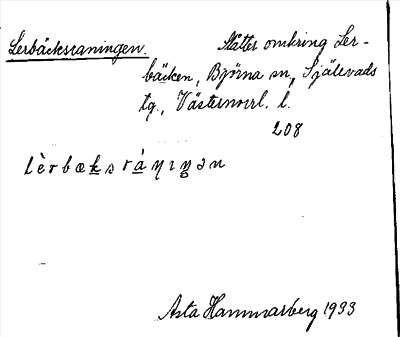 Lerbäcksraningen. Slåtter omkring Ler-
bäcken, Björna sn, Själevads
tg., Västernorrl. l.
208
lèrbæksrànıŋən
Asta Hammarberg 1933